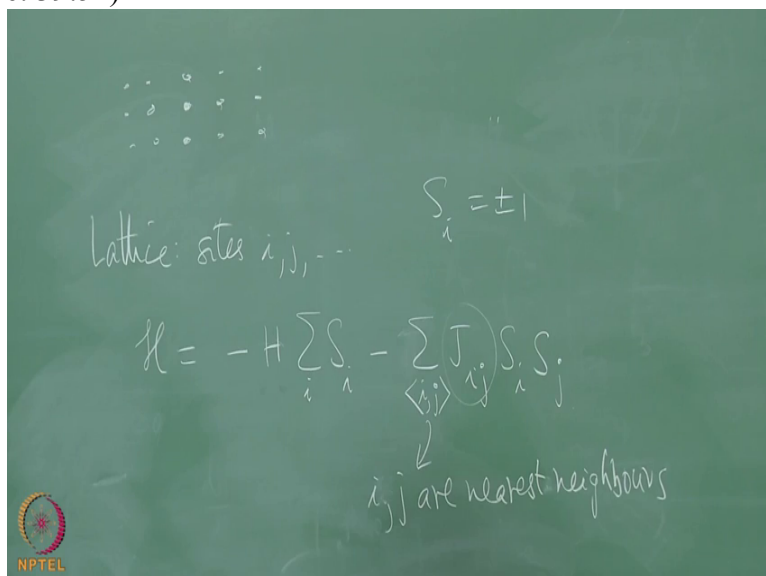 S_i = ±1
Lattice: sites i, j, ...
ℋ = - H ∑_i S_i - ∑_{<i,j>} J_{ij} S_i S_j
i, j are nearest neighbours
NPTEL